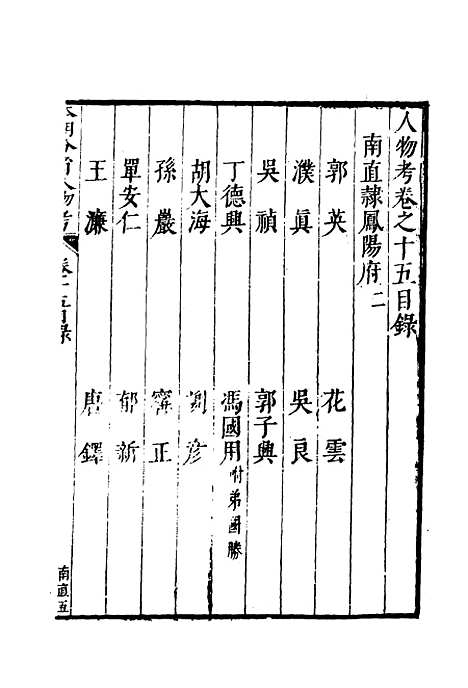 人物考卷之十五目錄
南直隸鳳陽府二
郭英 花雲
濮真 吳良
吳禎 郭子興
丁德興 馮國用附弟國勝
胡大海 劉彥
孫巖 甯正
單安仁 郁新
王濂 唐鐸
本朝分省人物考 卷十五目錄 南直五